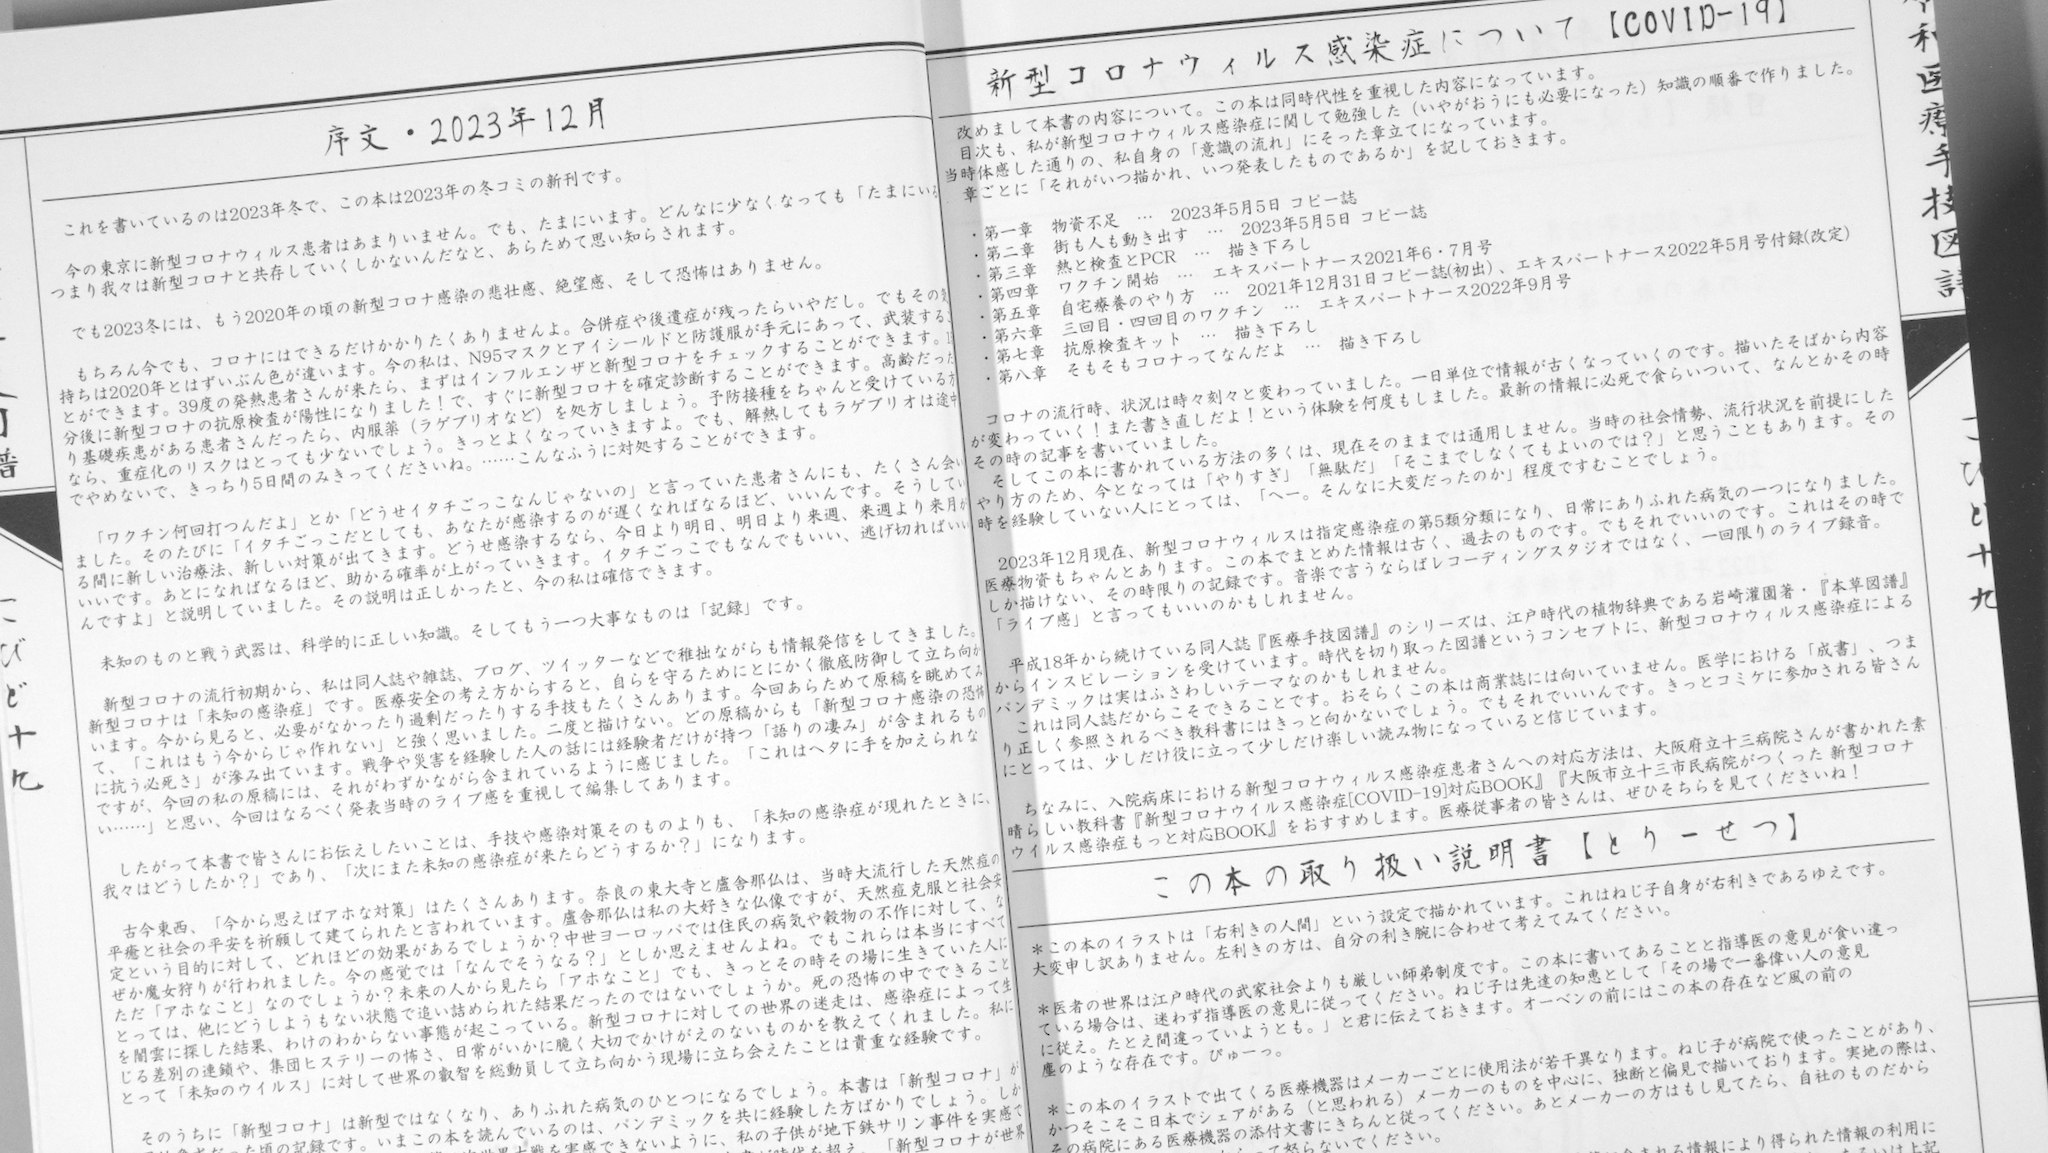 序文・2023年12月
これを書いているのは2023年冬で、この本は2023年の冬コミの新刊です。
今の東京に新型コロナウィルス患者はあまりいません。でも、たまにいます。どんなに少なくなっても「たまにいる
つまり我々は新型コロナと共存していくしかないんだなと、あらためて思い知らされます。
でも2023冬には、もう2020年の頃の新型コロナ感染の悲壮感、絶望感、そして恐怖はありません。
もちろん今でも、コロナにはできるだけかかりたくありませんよ。合併症や後遺症が残ったらいやだし。でもその気
持ちは2020年とはずいぶん色が違います。今の私は、N95マスクとアイシールドと防護服が手元にあって、武装する
とができます。39度の発熱患者さんが来たら、まずはインフルエンザと新型コロナをチェックすることができます。
分後に新型コロナの抗原検査が陽性になりました！で、すぐに新型コロナを確定診断することができます。高齢だった
り基礎疾患がある患者さんだったら、内服薬（ラゲブリオなど）を処方しましょう。予防接種をちゃんと受けている方
なら、重症化のリスクはとっても少ないでしょう。きっとよくなっていきますよ。でも、解熱してもラゲブリオは途中
でやめないで、きっちり5日間のみきってくださいね。……こんなふうに対処することができます。
「ワクチン何回打つんだよ」とか「どうせイタチごっこなんじゃないの」と言っていた患者さんにも、たくさん会い
ました。そのたびに「イタチごっこだとしても、あなたが感染するのが遅くなればなるほど、いいんです。そうしてい
る間に新しい治療法、新しい対策が出てきます。どうせ感染するなら、今日より明日、明日より来週、来週より来月が
いいです。あとになればなるほど、助かる確率が上がっていきます。イタチごっこでもなんでもいい、逃げ切ればいい
んですよ」と説明していました。その説明は正しかったと、今の私は確信できます。
未知のものと戦う武器は、科学的に正しい知識。そしてもう一つ大事なものは「記録」です。
新型コロナの流行初期から、私は同人誌や雑誌、ブログ、ツイッターなどで稚拙ながらも情報発信をしてきました。
新型コロナは「未知の感染症」です。医療安全の考え方からすると、自らを守るためにとにかく徹底防御して立ち向か
います。今から見ると、必要がなかったり過剰だったりする手技もたくさんあります。今回あらためて原稿を眺めてみ
て、「これはもう今からじゃ作れない」と強く思いました。二度と描けない。どの原稿からも「新型コロナ感染の恐怖
に抗う必死さ」が滲み出ています。戦争や災害を経験した人の話には経験者だけが持つ「語りの凄み」が含まれるもの
ですが、今回の私の原稿には、それがわずかながら含まれているように感じました。「これはヘタに手を加えられな
い……」と思い、今回はなるべく発表当時のライブ感を重視して編集してあります。
したがって本書で皆さんにお伝えしたいことは、手技や感染対策そのものよりも、「未知の感染症が現れたときに、
我々はどうしたか？」であり、「次にまた未知の感染症が来たらどうするか？」になります。
古今東西、「今から思えばアホな対策」はたくさんあります。奈良の東大寺と盧舎那仏は、当時大流行した天然痘の
平癒と社会の平安を祈願して建てられたと言われています。盧舎那仏は私の大好きな仏像ですが、天然痘克服と社会安
定という目的に対して、どれほどの効果があるでしょうか？中世ヨーロッパでは住民の病気や穀物の不作に対して、な
ぜか魔女狩りが行われました。今の感覚では「なんでそうなる？」としか思えませんよね。でもこれらは本当にすべて
ただ「アホなこと」なのでしょうか？未来の人から見たら「アホなこと」でも、きっとその時その場に生きていた人に
とっては、他にどうしようもない状態で追い詰められた結果だったのではないでしょうか。死の恐怖の中でできること
を闇雲に探した結果、わけのわからない事態が起こっている。新型コロナに対しての世界の迷走は、感染症によって生
じる差別の連鎖や、集団ヒステリーの怖さ、日常がいかに脆く大切でかけがえのないものかを教えてくれました。私に
とって「未知のウイルス」に対して世界の叡智を総動員して立ち向かう現場に立ち会えたことは貴重な経験です。
そのうちに「新型コロナ」は新型ではなくなり、ありふれた病気のひとつになるでしょう。本書は「新型コロナ」が
だった頃の記録です。いまこの本を読んでいるのは、パンデミックを共に経験した方ばかりでしょう。しか
世界大戦を実感できないように、私の子供が地下鉄サリン事件を実感で
時代を超え、「新型コロナが世界
新型コロナウィルス感染症について【COVID-19】
改めまして本書の内容について。この本は同時代性を重視した内容になっています。
目次も、私が新型コロナウィルス感染症に関して勉強した（いやがおうにも必要になった）知識の順番で作りました。
当時体感した通りの、私自身の「意識の流れ」にそった章立てになっています。
章ごとに「それがいつ描かれ、いつ発表したものであるか」を記しておきます。
・第一章　物資不足　…　2023年5月5日 コピー誌
・第二章　街も人も動き出す　…　2023年5月5日 コピー誌
・第三章　熱と検査とPCR　…　描き下ろし
・第四章　ワクチン開始　…　エキスパートナース2021年6・7月号
・第五章　自宅療養のやり方　…　2021年12月31日コピー誌(初出)、エキスパートナース2022年5月号付録(改定)
・第六章　三回目・四回目のワクチン　…　エキスパートナース2022年9月号
・第七章　抗原検査キット　…　描き下ろし
・第八章　そもそもコロナってなんだよ　…　描き下ろし
コロナの流行時、状況は時々刻々と変わっていました。一日単位で情報が古くなっていくのです。描いたそばから内容
が変わっていく！また書き直しだよ！という体験を何度もしました。最新の情報に必死で食らいついて、なんとかその時
その時の記事を書いていました。
そしてこの本に書かれている方法の多くは、現在そのままでは通用しません。当時の社会情勢、流行状況を前提にした
やり方のため、今となっては「やりすぎ」「無駄だ」「そこまでしなくてもよいのでは？」と思うこともあります。その
時を経験していない人にとっては、「へー。そんなに大変だったのか」程度ですむことでしょう。
2023年12月現在、新型コロナウィルスは指定感染症の第5類分類になり、日常にありふれた病気の一つになりました。
医療物資もちゃんとあります。この本でまとめた情報は古く、過去のものです。でもそれでいいのです。これはその時で
しか描けない、その時限りの記録です。音楽で言うならばレコーディングスタジオではなく、一回限りのライブ録音。
「ライブ感」と言ってもいいのかもしれません。
平成18年から続けている同人誌『医療手技図譜』のシリーズは、江戸時代の植物辞典である岩崎灌園著・『本草図譜』
からインスピレーションを受けています。時代を切り取った図譜というコンセプトに、新型コロナウィルス感染症による
パンデミックは実はふさわしいテーマなのかもしれません。
これは同人誌だからこそできることです。おそらくこの本は商業誌には向いていません。医学における「成書」、つま
り正しく参照されるべき教科書にはきっと向かないでしょう。でもそれでいいんです。きっとコミケに参加される皆さん
にとっては、少しだけ役に立って少しだけ楽しい読み物になっていると信じています。
ちなみに、入院病床における新型コロナウィルス感染症患者さんへの対応方法は、大阪府立十三病院さんが書かれた素
晴らしい教科書『新型コロナウイルス感染症[COVID-19]対応BOOK』『大阪市立十三市民病院がつくった 新型コロナ
ウイルス感染症もっと対応BOOK』をおすすめします。医療従事者の皆さんは、ぜひそちらを見てくださいね！
この本の取り扱い説明書【とりーせつ】
＊この本のイラストは「右利きの人間」という設定で描かれています。これはねじ子自身が右利きであるゆえです。
大変申し訳ありません。左利きの方は、自分の利き腕に合わせて考えてみてください。
＊医者の世界は江戸時代の武家社会よりも厳しい師弟制度です。この本に書いてあることと指導医の意見が食い違っ
ている場合は、迷わず指導医の意見に従ってください。ねじ子は先達の知恵として「その場で一番偉い人の意見
に従え。たとえ間違っていようとも。」と君に伝えておきます。オーベンの前にはこの本の存在など風の前の
塵のような存在です。ぴゅーっ。
＊この本のイラストで出てくる医療機器はメーカーごとに使用法が若干異なります。ねじ子が病院で使ったことがあり、
かつそこそこ日本でシェアがある（と思われる）メーカーのものを中心に、独断と偏見で描いております。実地の際は、
その病院にある医療機器の添付文書にきちんと従ってください。あとメーカーの方はもし見てたら、自社のものだから
って怒らないでください。
含まれる情報により得られた情報の利用に
令和医療手技図譜
こびど十九
譜
こびど十九